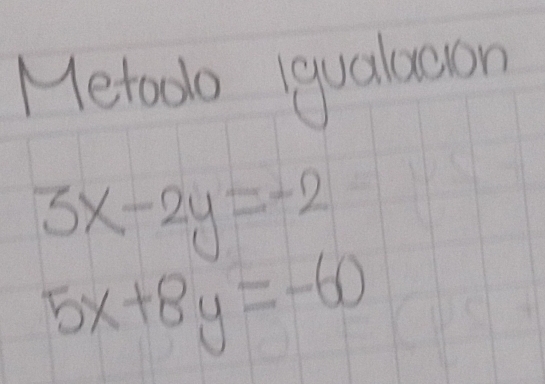 Metodo igualacion
3x-2y=-2
5x+8y=-60